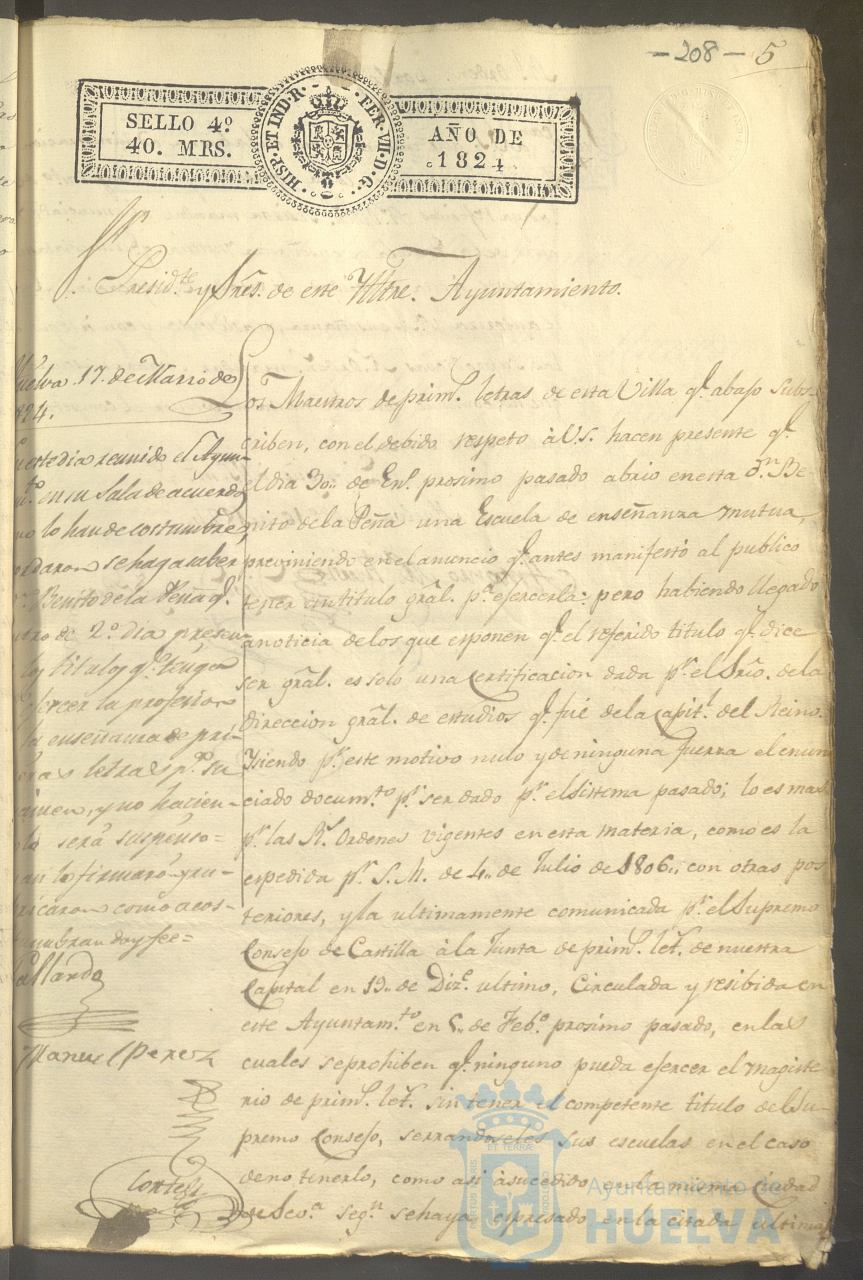 -208- 5
SELLO 4º
40. MRS.
HISP. ET IND. R. FER. VII. D. G.
AÑO DE
1824
Presidte. y Sres. de este Ylltre. Ayuntamiento.
Huelva 17. de Marzo de
824.
este dia reunido el Ayun-
to. en su Sala de acuerdo
lo han de costumbre,
acordaron se haga saber
Benito de la Peña qe.
de 2º dia presen
los titulos qe. tenga
ejercer la profesion
la enseñanza de pri-
letras pa. su
y no hacien-
será suspenso=
lo firmarón y ru-
bricaron como acos-
tumbran doy fee=
Gallardo
Manuel Perez
Cortes
Los Maestros de prims. letras de esta Villa qe. abajo subs-
criben, con el debido respeto à V.S. hacen presente qe.
el dia 30,, de Eno. prosimo pasado abrio en esta Dn. Be-
nito de la Peña una Escuela de enseñanza mutua,
previniendo en el anuncio qe. antes manifestó al publico
tener un titulo gral. pa. ejercerla: pero habiendo llegado
a noticia de los que esponen qe. el referido titulo qe. dice
ser gral. es solo una certificacion dada pr. el Srio. de la
direccion gral. de estudios qe. fué de la Capitl. del Reino.
Y siendo pr. este motivo nulo y de ninguna fuerza el enun
ciado documto. pr. ser dado pr. el sistema pasado; lo es mas
pr. las Rs. Ordenes vigentes en esta materia, como es la
espedida pr. S. M. de 4,, de Julio de 1806,, con otras pos
teriores, y la ultimamente comunicada pr. el Supremo
Consejo de Castilla à la Junta de prims. lets. de nuestra
Capital en 19,, de Dize. ultimo, Circulada y resibida en
este Ayuntamto. en 5,, de Febo. prosimo pasado, en las
cuales se prohiben qe. ninguno pueda ejercer el magiste
rio de prims. lets. sin tener el competente titulo del Su-
premo Consejo, serrandoseles sus escuelas en el caso
de no tenerlo, como asi à sucedido en la misma Ciudad
de Seva. segn. se haya espresado en la citada ultima
Ayuntamiento de
HUELVA